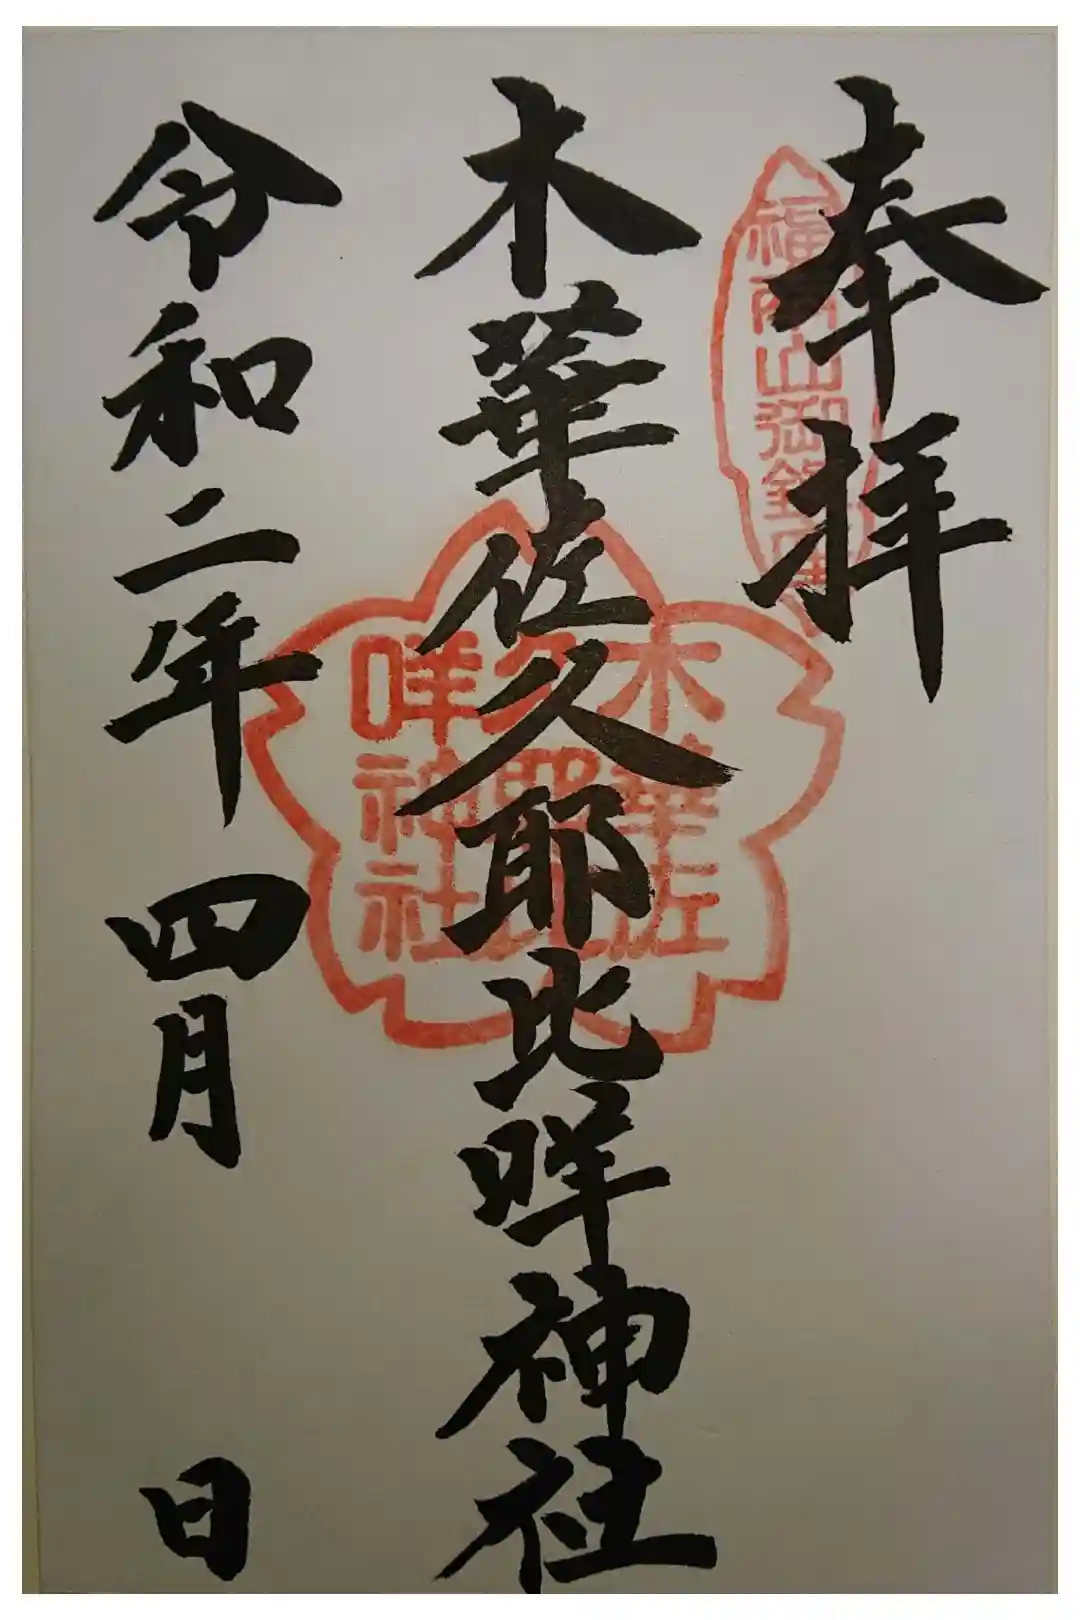 奉拝
木華佐久耶比咩神社
令和二年四月 日
木華佐
久耶比
咩神社